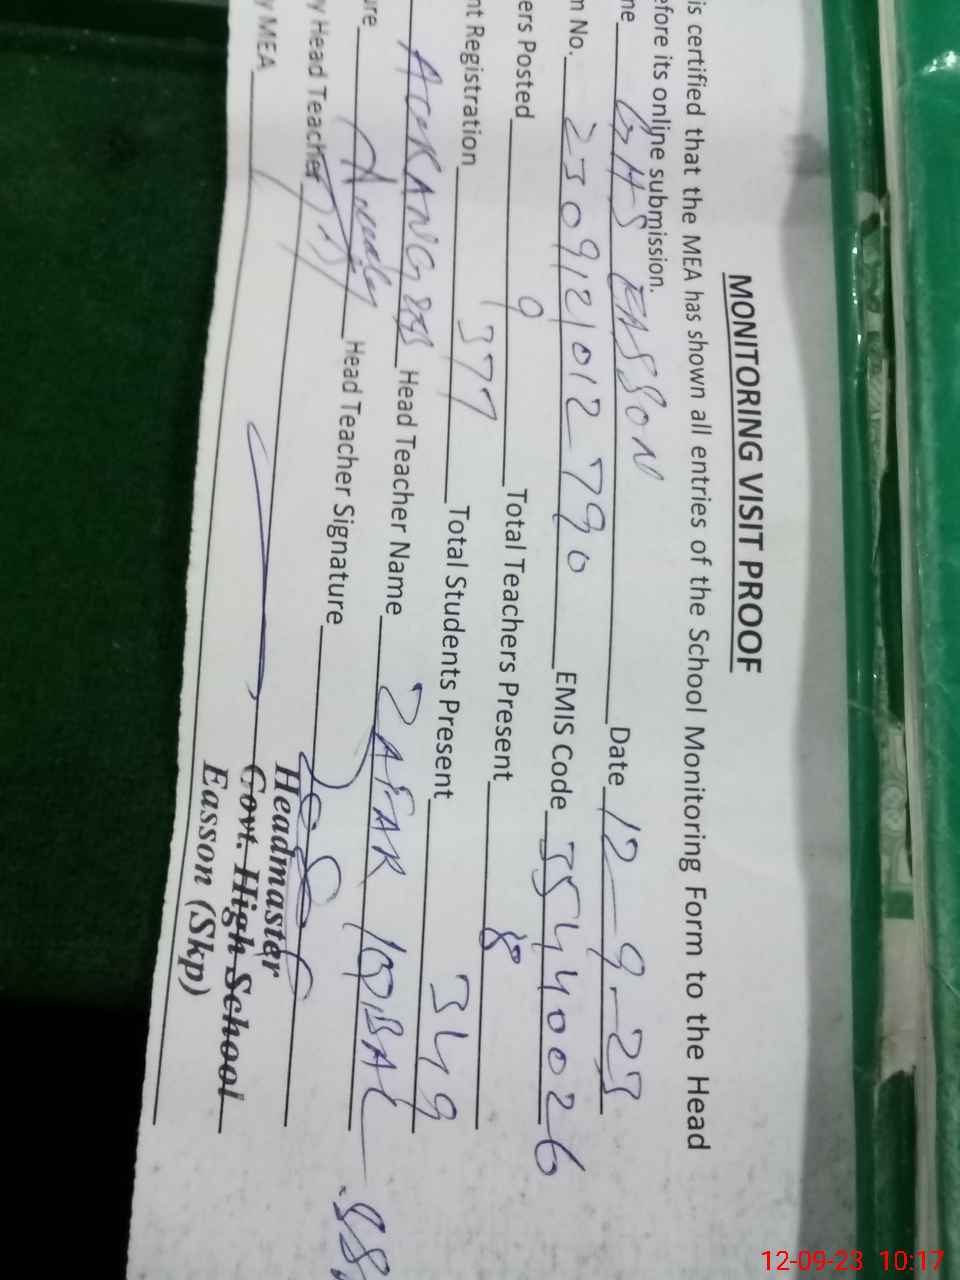 MONITORING VISIT PROOF
is certified that the MEA has shown all entries of the School Monitoring Form to the Head
efore its online submission.
me GHS EASSON Date 12-9-23
n No. 2309121012790 EMIS Code 35440026
ers Posted 9 Total Teachers Present 8
nt Registration 377 Total Students Present 349
AURANGZEB Head Teacher Name ZAFAR IQBAL
ure Head Teacher Signature
y Head Teacher
y MEA
Headmaster
Govt. High School
Easson (Skp)
12-09-23 10:17